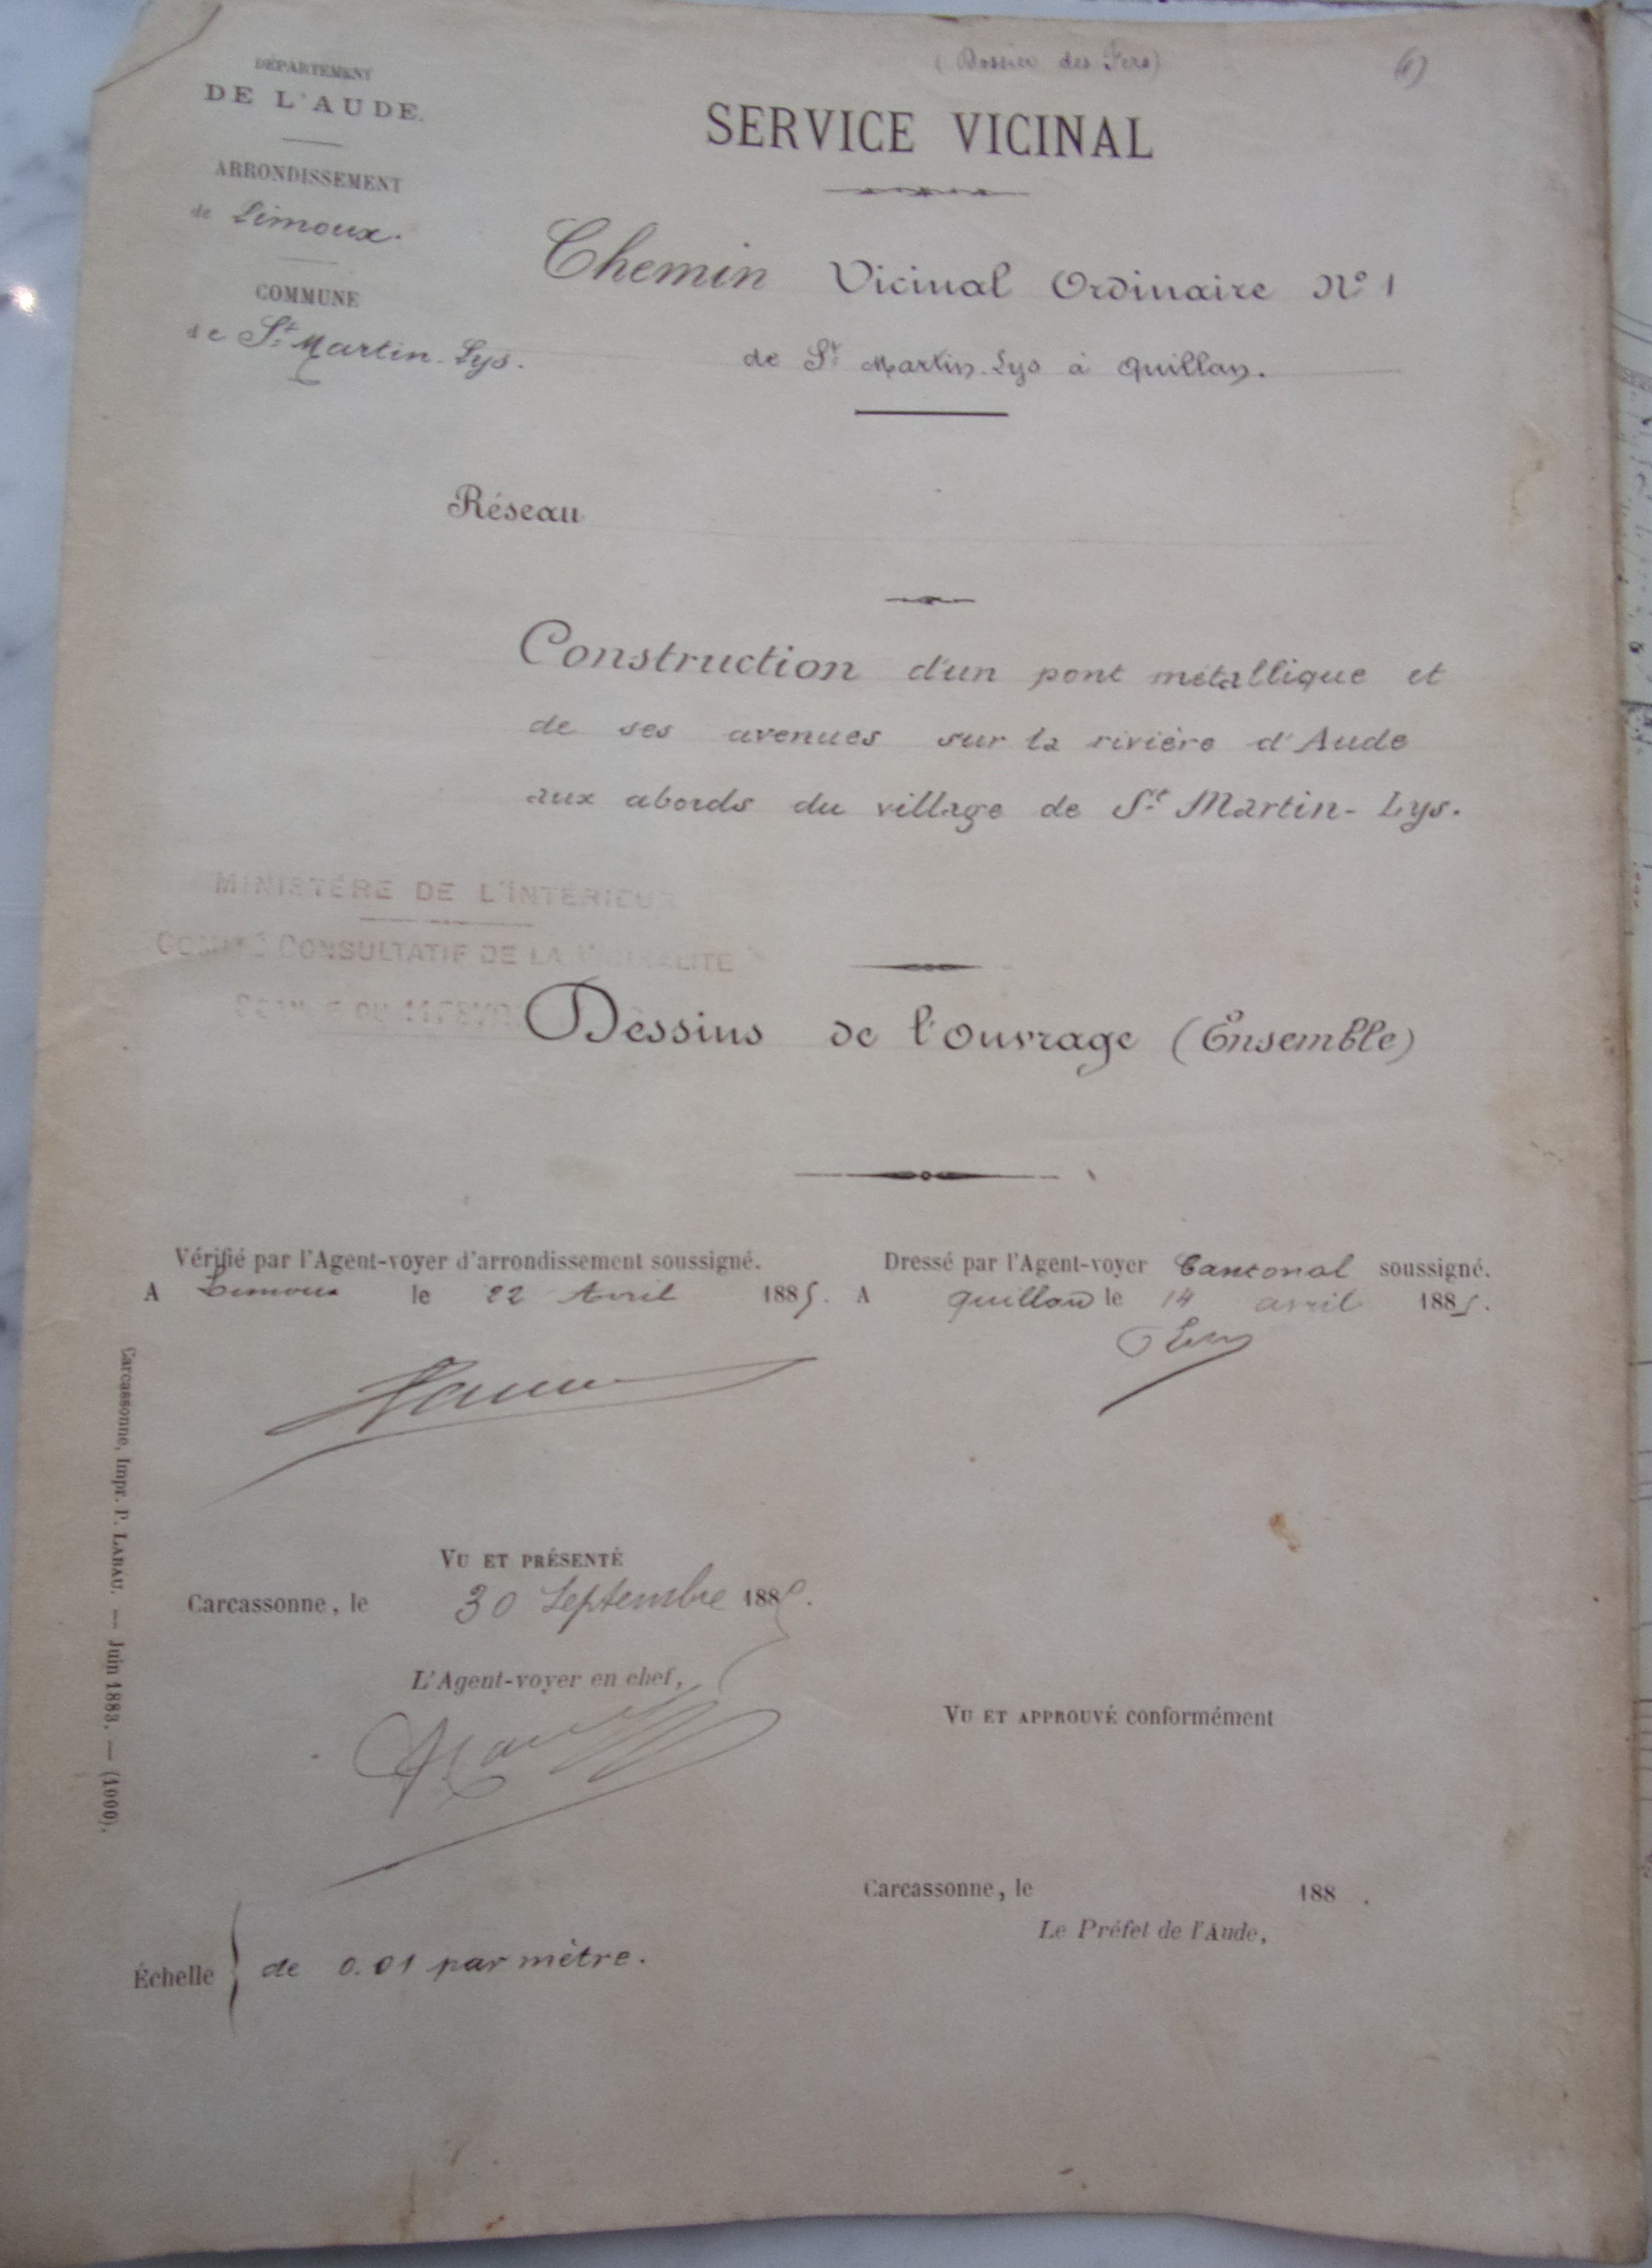 (Dossier des Fers)
DÉPARTEMENT
DE L'AUDE.
ARRONDISSEMENT
de Limoux.
COMMUNE
de St Martin-Lys.
SERVICE VICINAL
Chemin Vicinal Ordinaire No 1
de St Martin-Lys à Quillan.
Réseau
Construction d'un pont métallique et
de ses avenues sur la rivière d'Aude
aux abords du village de St Martin-Lys.
MINISTÈRE DE L'INTÉRIEUR
COMITÉ CONSULTATIF DE LA VICINALITÉ
Dessins de l'ouvrage (Ensemble)
Vérifié par l'Agent-voyer d'arrondissement soussigné.
A Limoux le 22 Avril 1885.
Dressé par l'Agent-voyer Cantonal soussigné.
A Quillan le 14 avril 1885.
VU ET PRÉSENTÉ
Carcassonne, le 30 Septembre 188
L'Agent-voyer en chef,
VU ET APPROUVÉ conformément
Carcassonne, le 188 .
Le Préfet de l'Aude,
Échelle } de 0.01 par mètre.
Carcassonne, Impr. P. LABAU. — Juin 1883. — (1000).